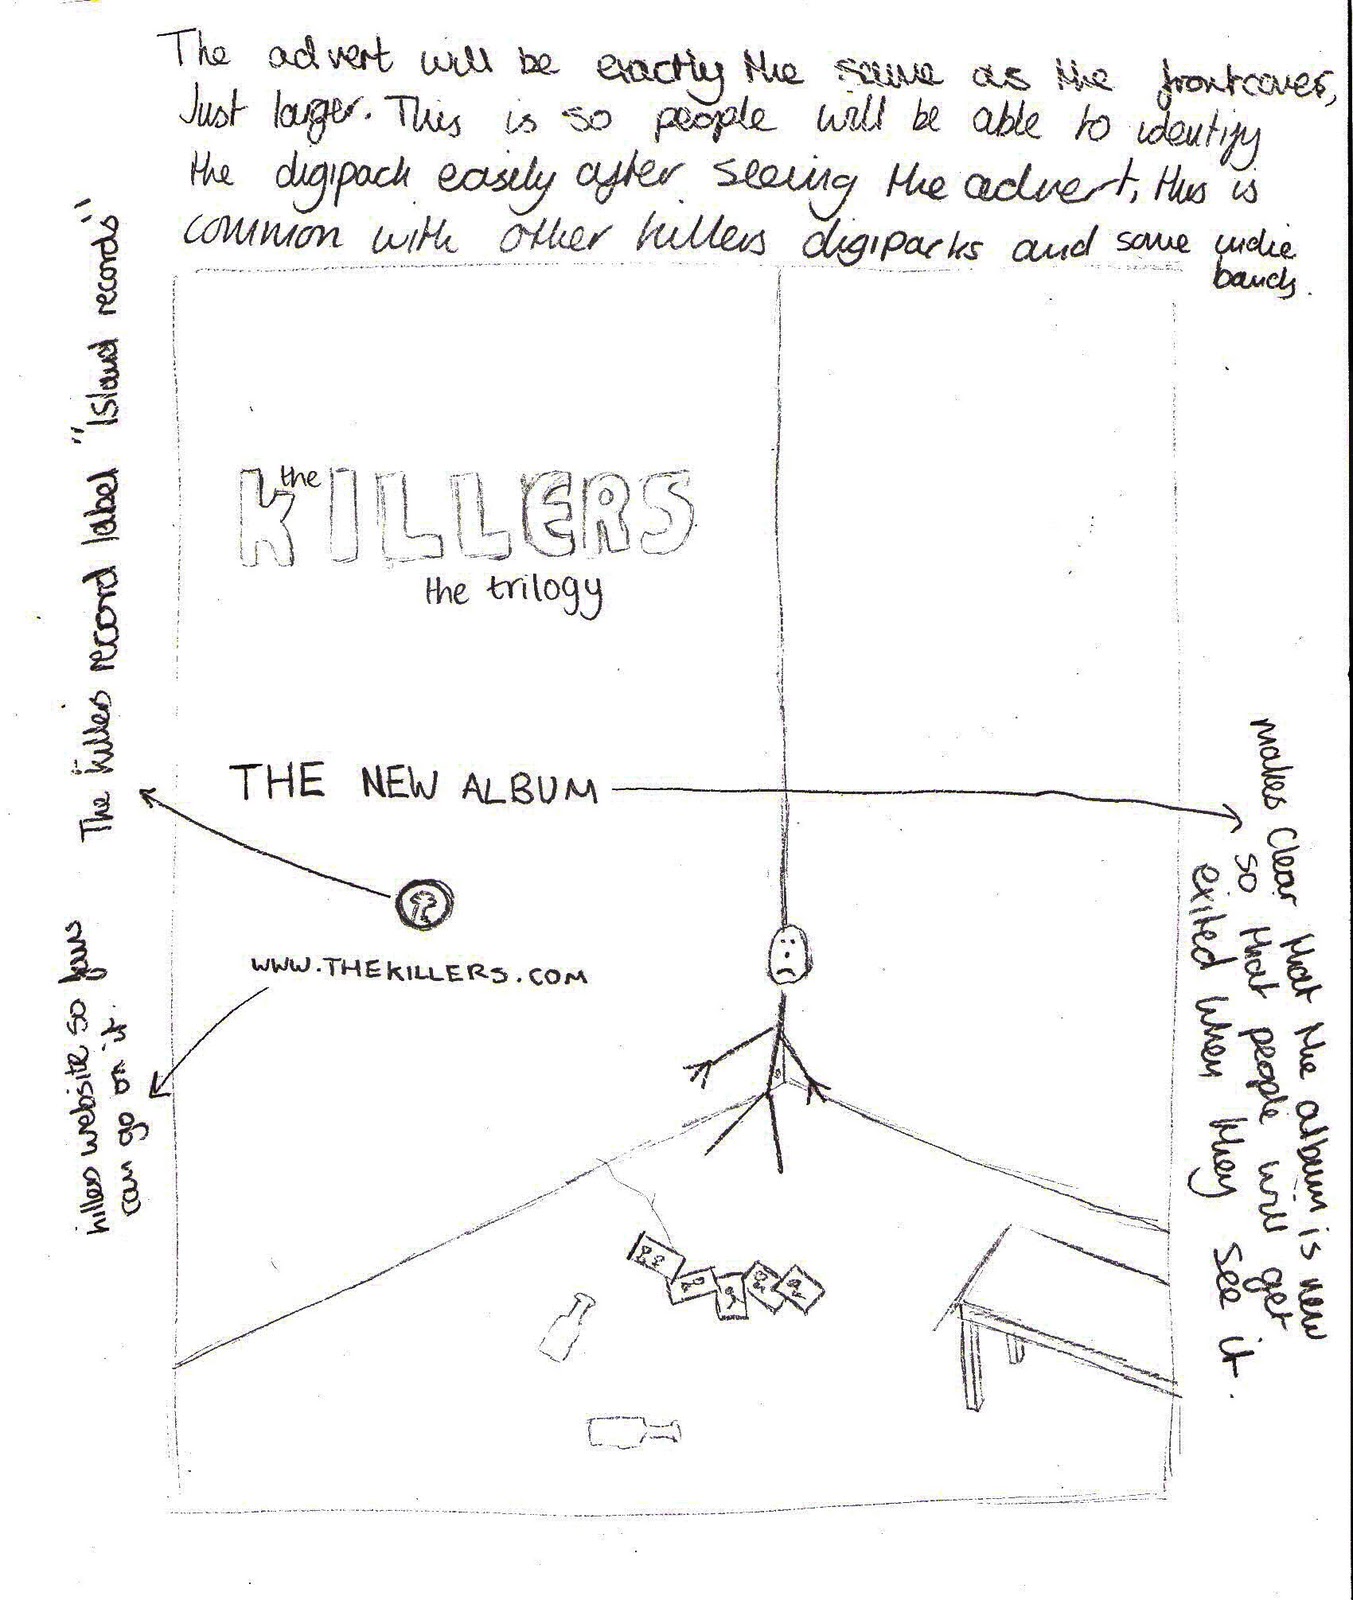 The advert will be exactly the same as the frontcover,
Just larger. This is so people will be able to identify
the digipack easily after seeing the advert, this is
common with other killers digipacks and some indie
bands.
The killers record label "Island records"
the
KILLERS
the trilogy
THE NEW ALBUM
makes clear that the album is new
so that people will get
exited when they see it.
WWW.THEKILLERS.COM
killers website so fans
can go on it.